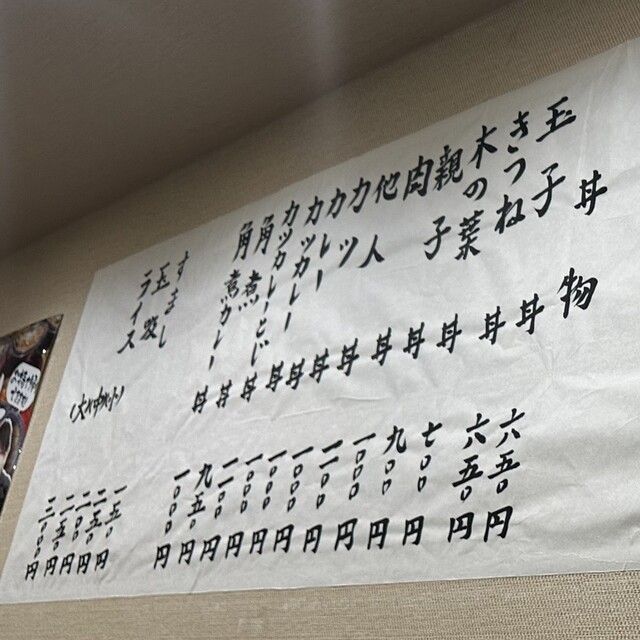 丼物
玉子丼 六五〇円
きつね丼 六五〇円
木の葉丼 七〇〇円
親子丼 九〇〇円
肉丼 一〇〇〇円
他人丼 一一〇〇円
カツ丼 一〇〇〇円
カレー丼 一〇〇〇円
カツカレー丼 一〇〇〇円
カツカレーとじ丼 一一〇〇円
角煮丼 九五〇円
角煮カレー丼 一〇〇〇円
すまし 一五〇円
玉吸 二五〇円
ライス 二〇〇円
二五〇円
三〇〇円